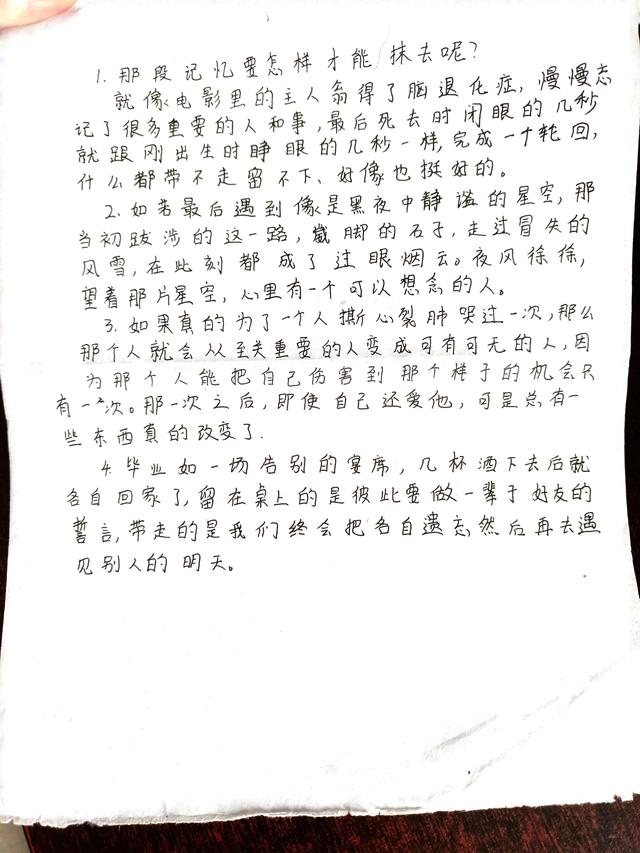 1. 那段记忆要怎样才能抹去呢?
就像电影里的主人翁得了脑退化症, 慢慢忘
记了很多重要的人和事, 最后死去时闭眼的几秒
就跟刚出生时睁眼的几秒一样, 完成一个轮回,
什么都带不走留不下、好像也挺好的。
2. 如若最后遇到像是黑夜中静谧的星空, 那
当初跋涉的这一路, 崴脚的石子, 走过冒失的
风雪, 在此刻都成了过眼烟云。夜风徐徐,
望着那片星空, 心里有一个可以想念的人。
3. 如果真的为了一个人撕心裂肺哭过一次, 那么
那个人就会从至关重要的人变成可有可无的人, 因
为那个人能把自己伤害到那个样子的机会只
有一次。那一次之后, 即使自己还爱他, 可是总有一
些东西真的改变了.
4. 毕业如一场告别的宴席, 几杯酒下去后就
各自回家了, 留在桌上的是彼此要做一辈于好友的
誓言, 带走的是我们终会把各自遗忘, 然后再去遇
见别人的明天。